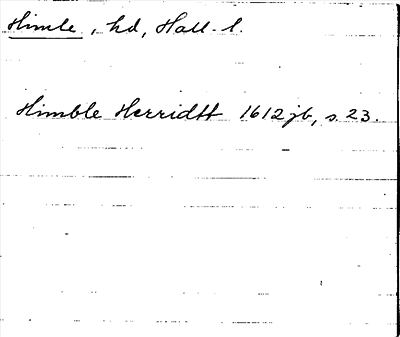 Himle, hd, Hall. l.
Himble Herridtt 1612 jb, s. 23.